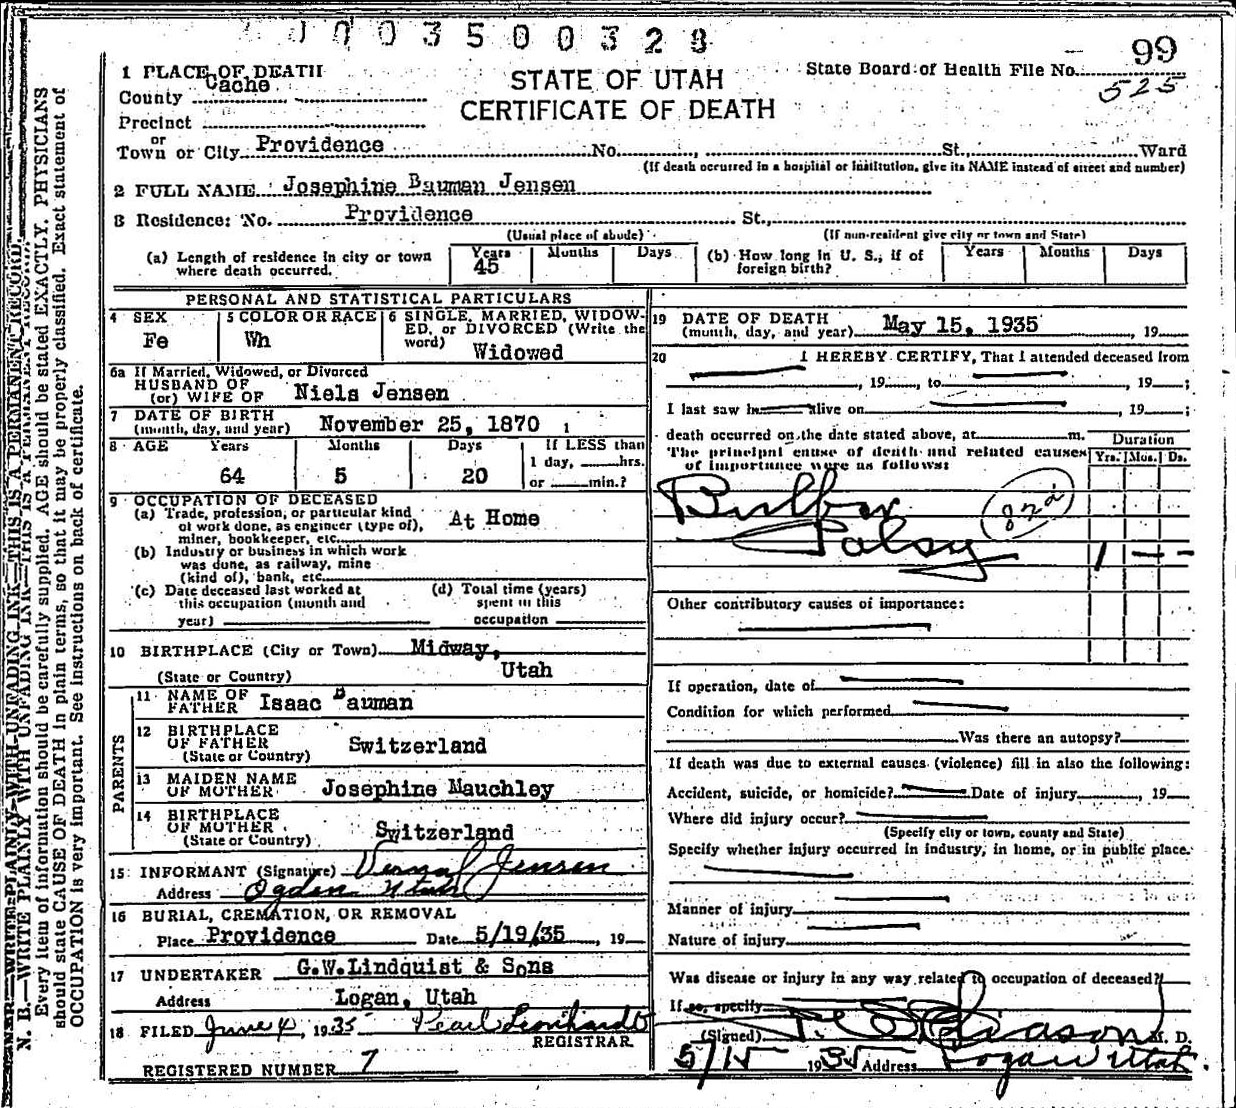 0003500328
99
525
STATE OF UTAH
CERTIFICATE OF DEATH
State Board of Health File No.
1 PLACE OF DEATH
County Cache
Precinct
or
Town or City Providence No. St., Ward
(If death occurred in a hospital or institution, give its NAME instead of street and number)
2 FULL NAME Josephine Bauman Jensen
3 Residence: No. Providence St.,
(Usual place of abode) (If non-resident give city or town and State)
(a) Length of residence in city or town where death occurred. Years 45 Months Days (b) How long in U. S., if of foreign birth? Years Months Days
PERSONAL AND STATISTICAL PARTICULARS
4 SEX Fe
5 COLOR OR RACE Wh
6 SINGLE, MARRIED, WIDOWED, or DIVORCED (Write the word) Widowed
6a If Married, Widowed, or Divorced
HUSBAND OF
(or) WIFE OF Niels Jensen
7 DATE OF BIRTH
(month, day, and year) November 25, 1870
8 AGE Years Months Days If LESS than
64 5 20 1 day, hrs.
or min.?
9 OCCUPATION OF DECEASED
(a) Trade, profession, or particular kind
of work done, as engineer (type of),
miner, bookkeeper, etc. At Home
(b) Industry or business in which work
was done, as railway, mine
(kind of), bank, etc.
(c) Date deceased last worked at
this occupation (month and
year)
(d) Total time (years)
spent in this
occupation
10 BIRTHPLACE (City or Town) Midway,
(State or Country) Utah
PARENTS
11 NAME OF
FATHER Isaac Bauman
12 BIRTHPLACE
OF FATHER Switzerland
(State or Country)
13 MAIDEN NAME
OF MOTHER Josephine Mauchley
14 BIRTHPLACE
OF MOTHER
(State or Country) Switzerland
15 INFORMANT (Signature) Vernal Jensen
Address Ogden Utah
16 BURIAL, CREMATION, OR REMOVAL
Place Providence Date 5/19/35, 19
17 UNDERTAKER G.W.Lindquist & Sons
Address Logan, Utah
18 FILED June 4, 1935 Pearl Leonhardt
REGISTRAR
REGISTERED NUMBER 7
19 DATE OF DEATH
(month, day, and year) May 15, 1935, 19
20 I HEREBY CERTIFY, That I attended deceased from
, 19, to , 19;
I last saw h alive on , 19;
death occurred on the date stated above, at m.
The principal cause of death and related causes
of importance were as follows:
Duration
Yrs. Mos. Ds.
Bulbar
Palsy
82d
1 - -
Other contributory causes of importance:
If operation, date of
Condition for which performed
Was there an autopsy?
If death was due to external causes (violence) fill in also the following:
Accident, suicide, or homicide? Date of injury , 19
Where did injury occur?
(Specify city or town, county and State)
Specify whether injury occurred in industry, in home, or in public place.
Manner of injury
Nature of injury
Was disease or injury in any way related to occupation of deceased?
If so, specify
(Signed) M. D.
5/15 1935 Address Logan Utah.
N. B.—WRITE PLAINLY WITH UNFADING INK—THIS IS A PERMANENT RECORD.
Every item of information should be carefully supplied. AGE should be stated EXACTLY. PHYSICIANS
should state CAUSE OF DEATH in plain terms, so that it may be properly classified. Exact statement of
OCCUPATION is very important. See instructions on back of certificate.